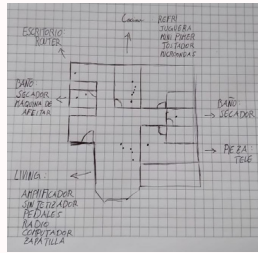 ESCRITORIO
ROUTER
COCINA
REFRI
JUGUERA
MINI PIMER
TOSTADOR
MICROONDAS
BAÑO:
SECADOR
MAQUINA DE
AFEITAR
BAÑO
SECADOR
PIEZA
TELE
LIVING:
AMPLIFICADOR
SINTETIZADOR
PEDALES
RADIO
COMPUTADOR
ZAPATILLA